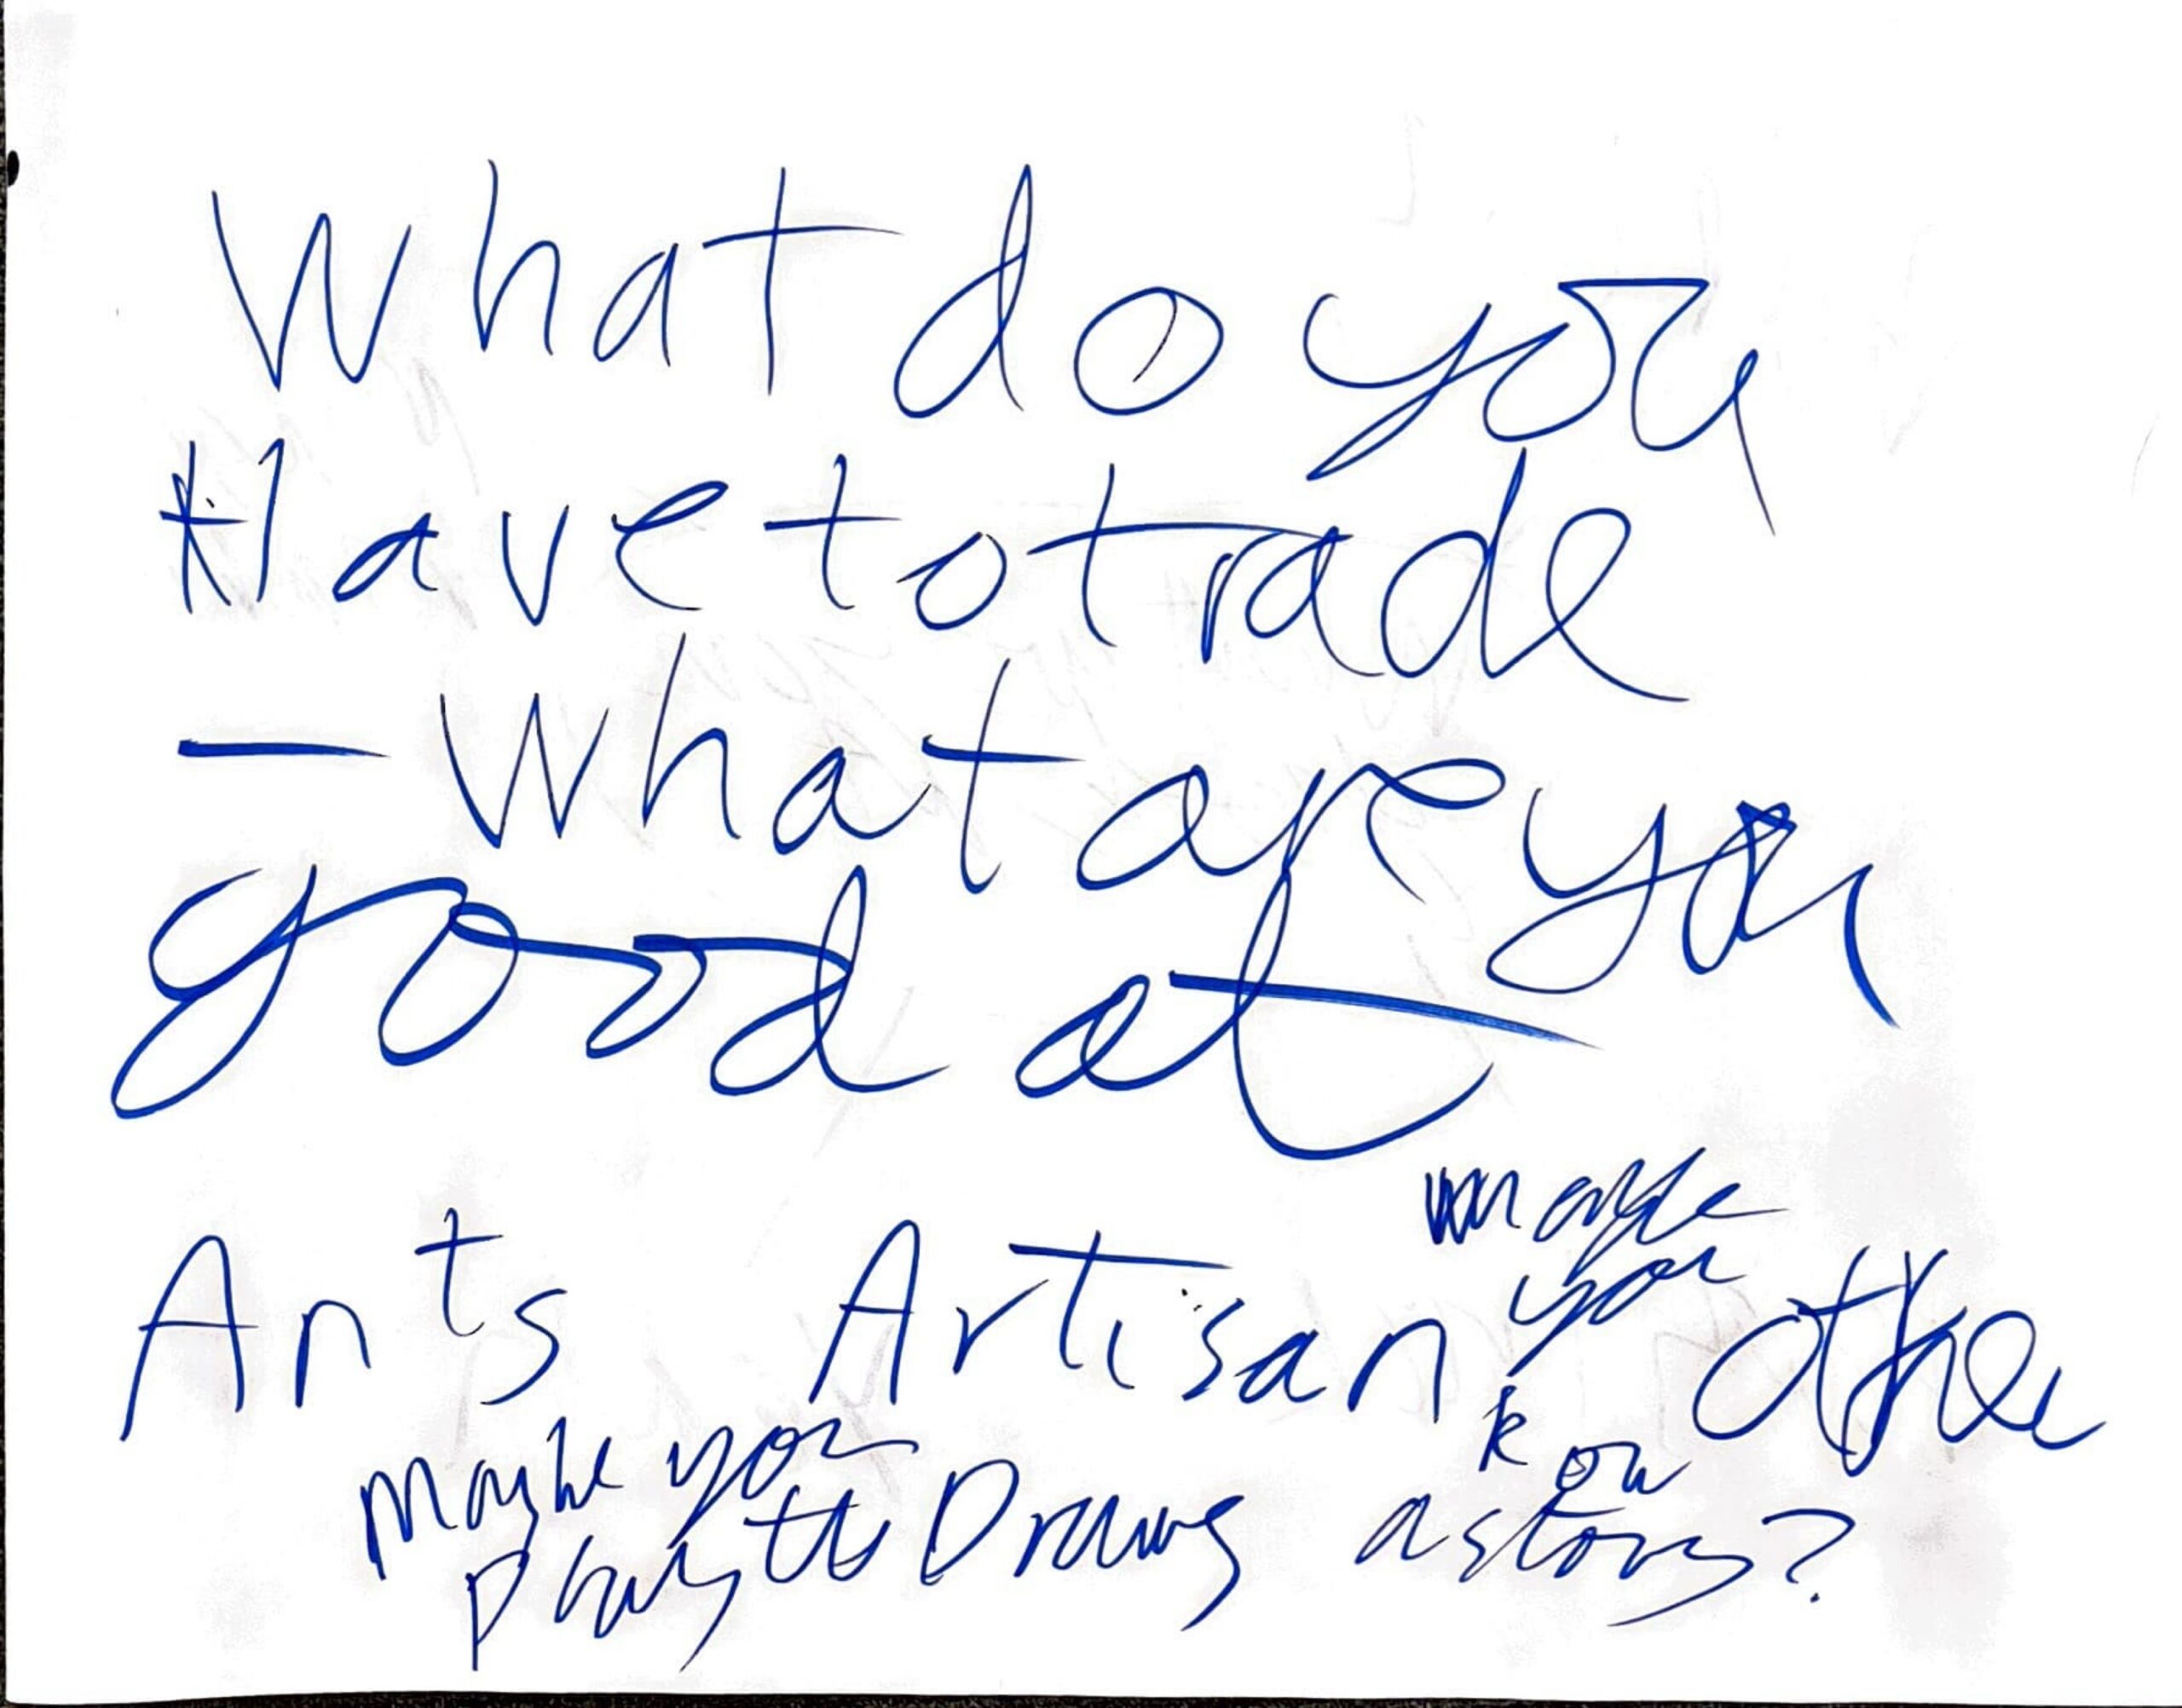 What do you
Have to trade
- What are you
good at
Arts Artisan other
maybe
you
know
a story?
Maybe you
play the Drums